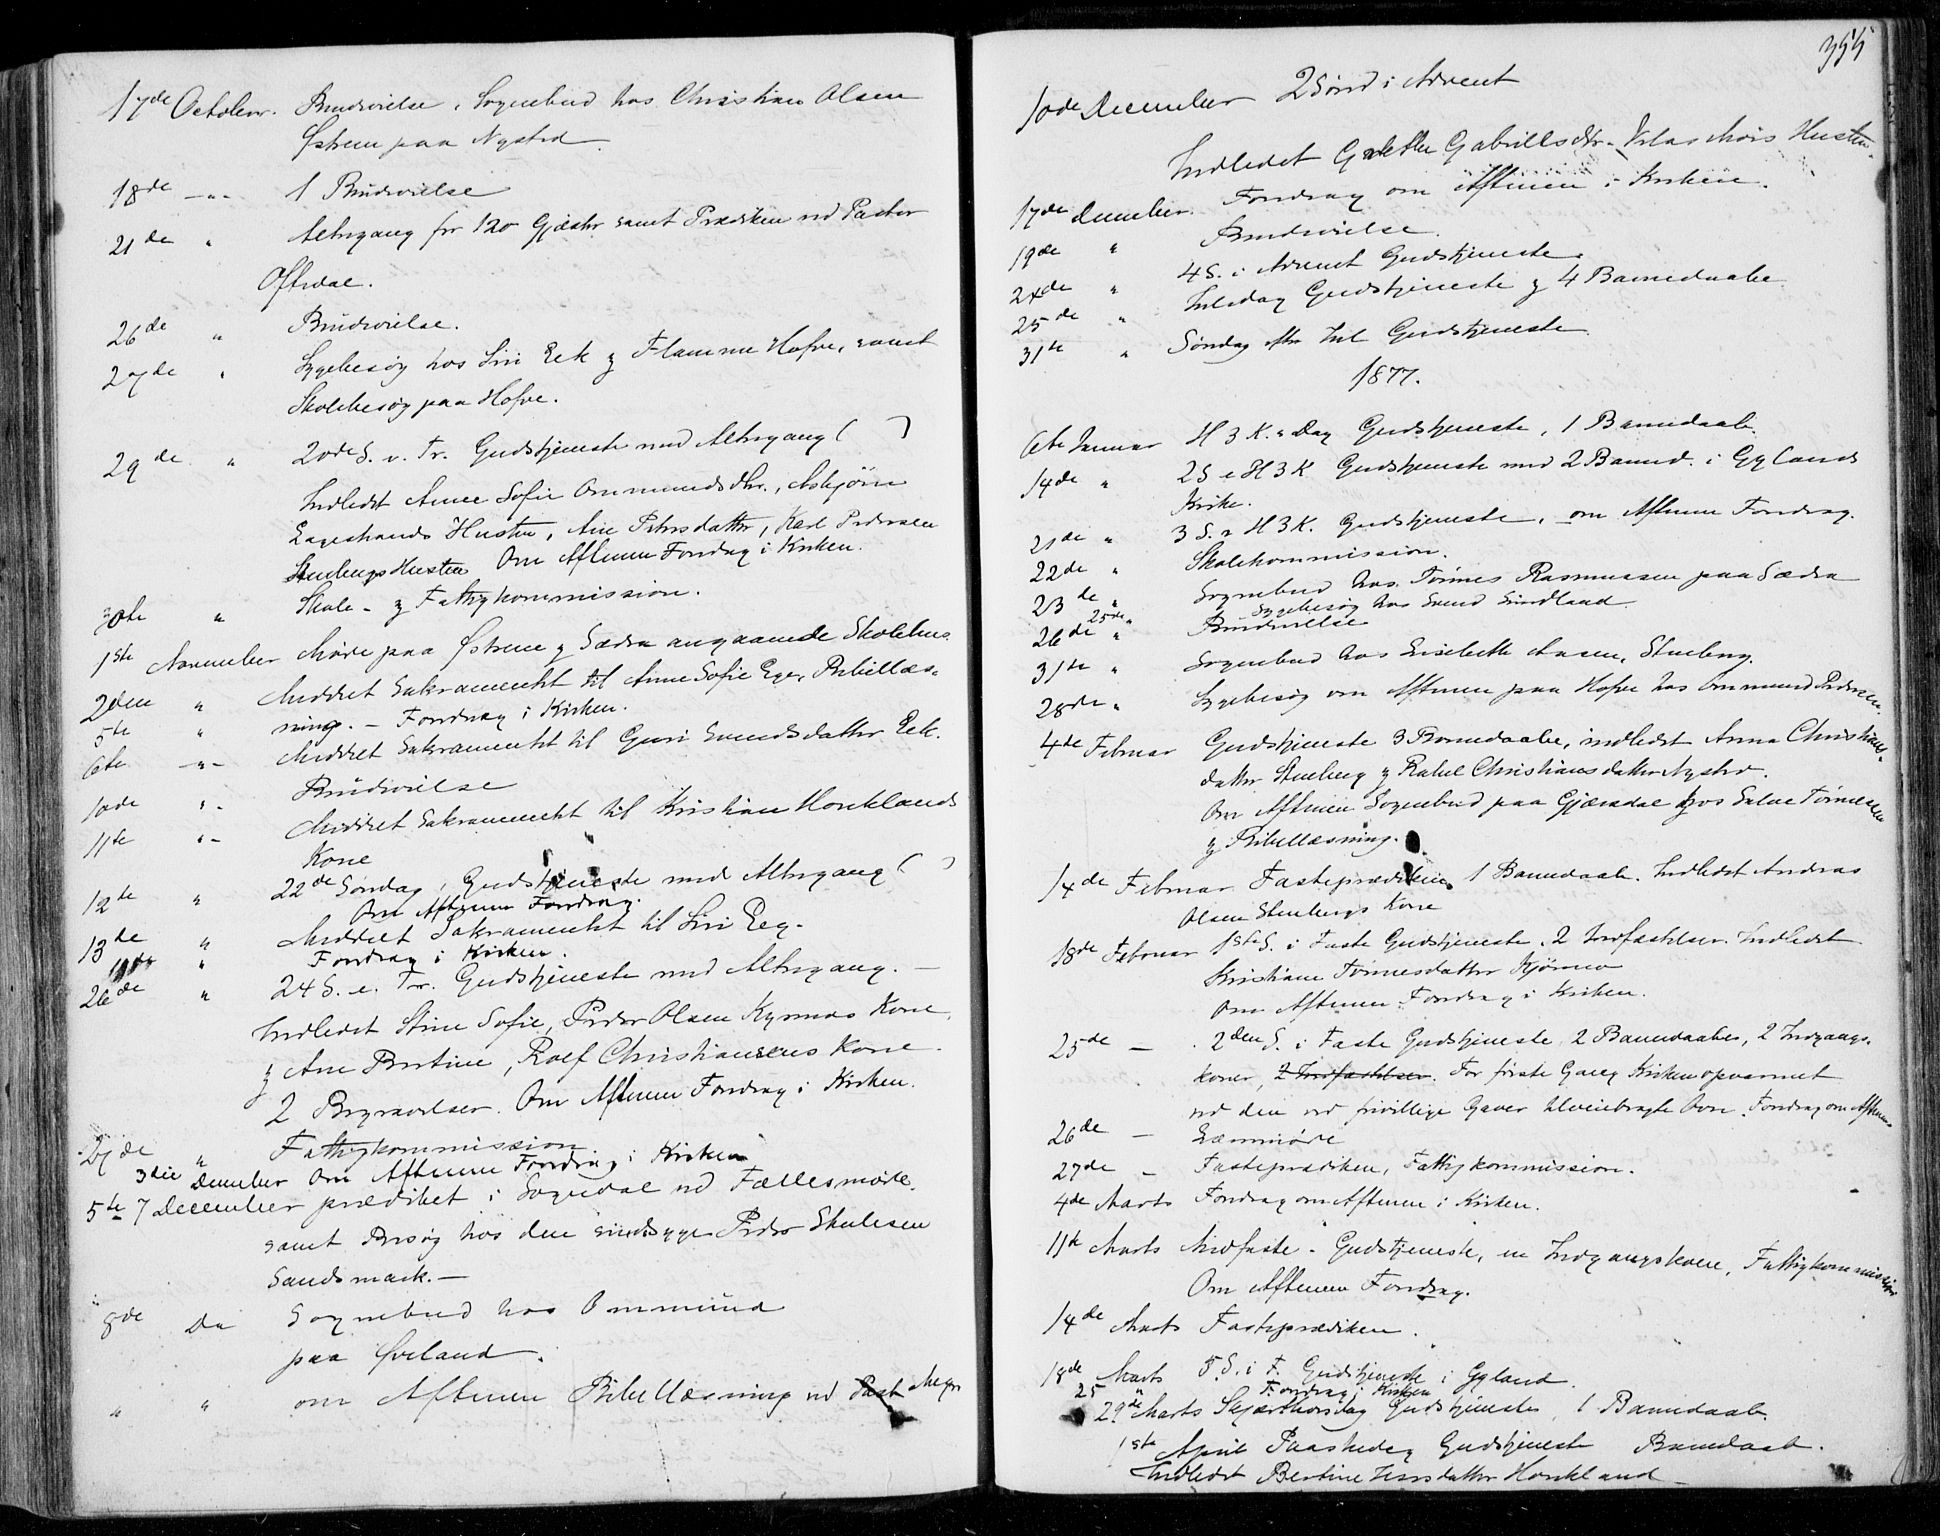 17de October. Brudvielse, Sognebud hos Christian Olsen
Østrem paa Nysted
18de -"- 1 Brudvielse
21de " Altergang for 120 Gjæster samt Prædiken ved Pastor
Oftedal.
26de " Brudvielse.
27de " Sygebesøg hos Siri Eek og Flamme Hofve, samt
Skolebesøg paa Hofve.
29de " 20de S. e. Tr. Gudstjeneste med Altergang ( )
Indledet Anne Sofie Ommundsdtr., Asbjørn
Hustru, Ane Petersdatter, Karl Pedersen
Stenbergs Hustru Om Aftenen Foredrag i Kirken.
30te " Skole- og Fattigkommission.
1ste November Møde paa Østrem og Sædra angaaende Skolehus
2den " Meddelt Sakramentet til Anne Sofie Ege, Bibellæs-
5te " ning. - Foredrag i Kirken.
6te -"- Meddelt Sakramentet til Guri Svendsdatter Eek.
10de "- Brudvielse
11te "- Meddelt Sakramentet til Kristian Houklands
Kone
12te " 22de Søndag, Gudstjeneste med Altergang ( )
Om Aftenen Foredrag.
13de " Meddelt Sakramentet til Siri Eeg.
" Foredrag i Kirken.
26de " 24 S. e. Tr. Gudstjeneste med Altergang. -
Indledet Stine Sofie, Peder Olsen Kone,
og Ane Bertine, Rolf Christiansens Kone.
2 Begravelser. Om Aftenen Foredrag i Kirken.
27de " Fattigkommission
3die December Om Aftenen Foredrag i Kirken
5te 7 December prædiket i Sogndal ved Fællesmøde
samt Besøg hos den sindssyge Peder
Sandsmark. -
8de De Sognebud hos Ommund
paa Øveland.
" " om Aftenen Bibellæsning ved Past
355
10de December 2 Sønd i Advent
Indledet Gabrielsdtr. Hustru
17de December. Foredrag om Aftenen i Kirken.
19de " Brudvielse.
24de " 4 S. i Advent Gudstjeneste
25de " Juledag Gudstjeneste og 4 Barnedaabe
31te " Søndag efter Jul Gudstjeneste
1877.
6te Januar H 3 K. s Dag Gudstjeneste, 1 Barnedaab.
14de " 2 S e H 3 K Gudstjeneste med 2 Barned. i Gylands
Kirke.
21de " 3 S. e H 3 K. Gudstjeneste, om Aftenen Foredrag.
22de " Skolekommission.
23de " Sognebud hos Tønnes Rasmussen paa Sædra
25de " Sygebesøg hos Svend Sindland
26de " Brudvielse
31te " Sognebud hos Lisebeth Aasen, Stenberg.
28de " Sygebesøg om Aftenen paa Hofve hos Ommund Pedersen.
4de Februar Gudstjeneste 3 Barnedaabe, indledet Anna Christians-
datter Stenberg og Rakel Christiansdatter Nysted.
Om Aftenen Sognebud paa Gjærsdal hos Salve Tønnesen
og Bibellæsning.
14de Februar Fasteprædiken 1 Barnedaab. Indledet Andreas
Olsen Stenbergs Kone
18de Februar 1ste S. i Faste Gudstjeneste. 2 Jordfæstelser. Indledet
Kristiane Tønnesdatter
Om Aftenen Foredrag i Kirken.
25de - 2den S. i Faste Gudstjeneste, 2 Barnedaaber, 2 Indgangs-
koner, 2 Jordfæstelser. For første Gang Kirken opvarmet
ved den ved frivillige Gaver tilveiebragte Ovn. Foredrag om Aftenen
26de -
27de - Fasteprædiken, Fattigkommission.
4de Marts Foredrag om Aftenen i Kirken.
11te Marts Midfaste - Gudstjeneste, en Indgangskone, Fattigkommission
Om Aftenen Foredrag.
14de Marts Fasteprædiken.
18de Marts 5 S. i F. Gudstjeneste i Gyland.
25 " Foredrag i Kirken
29de Marts Skjærthorsdag Gudstjeneste, 1 Barnedaab.
1ste April Paaskedag Gudstjeneste Barnedaab.
Indledet Bertine Houkland